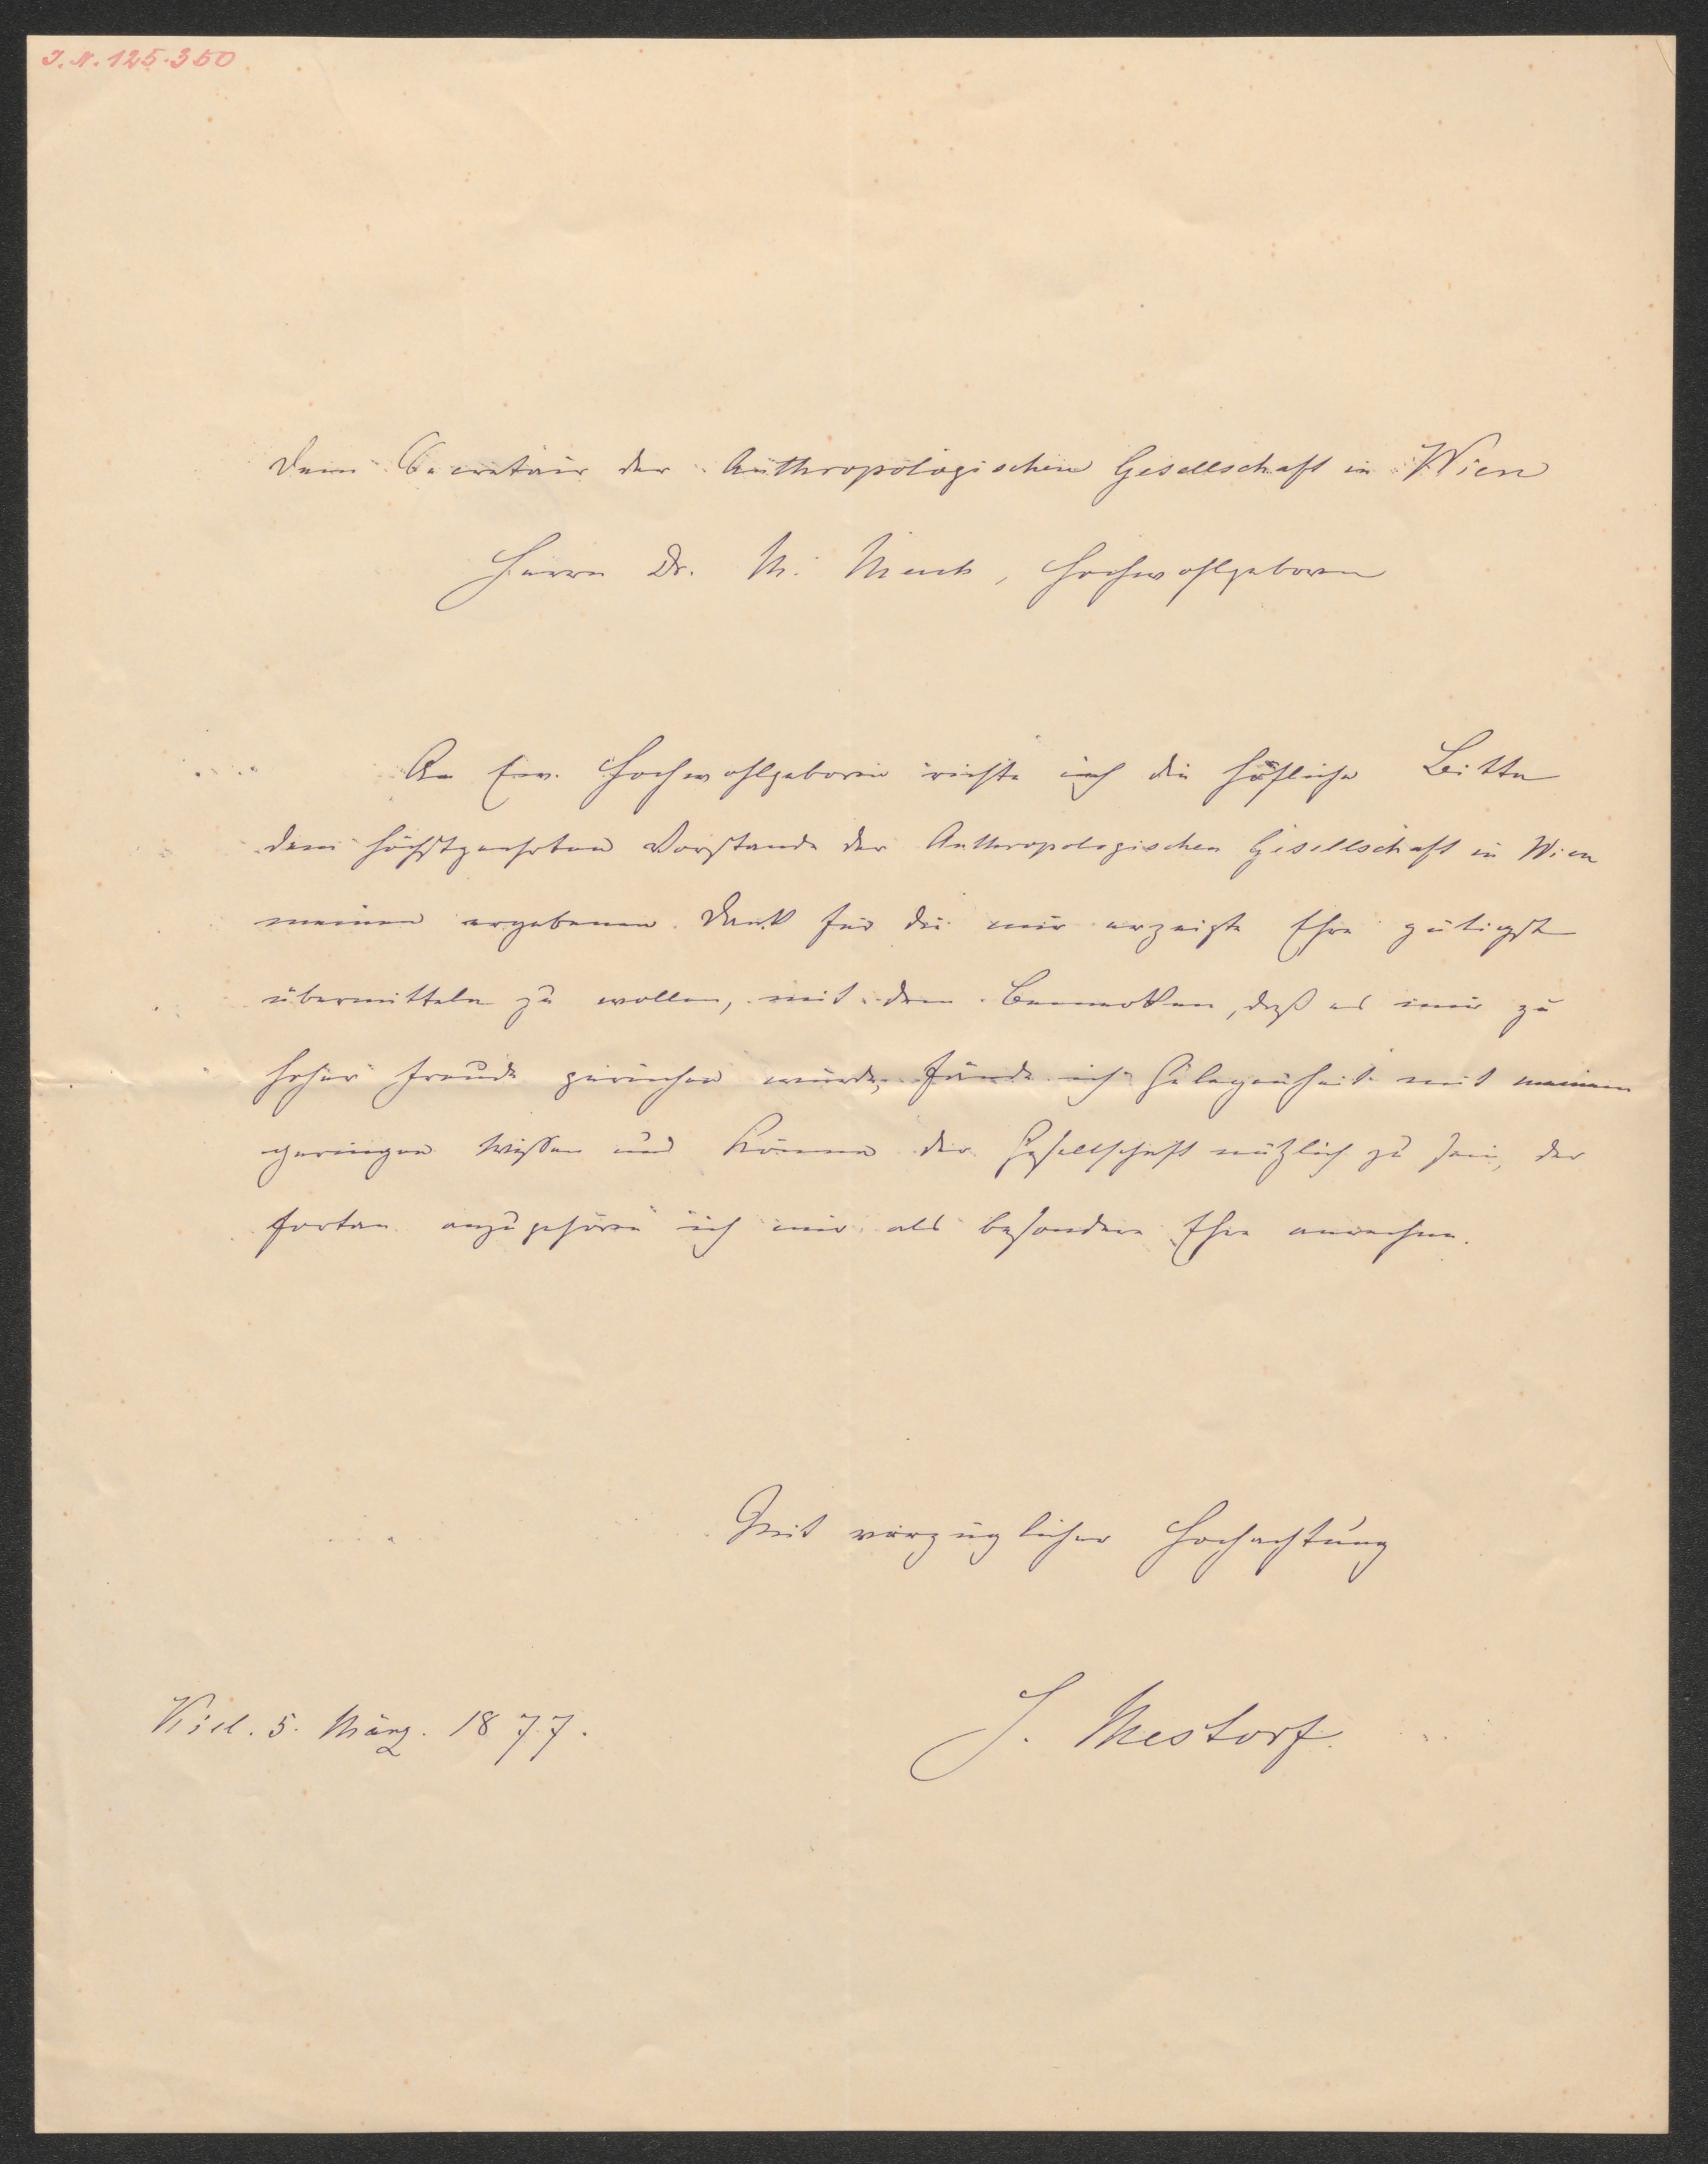 I. N. 125.350
Dem Secretair der Anthropologischen Gesellschaft in Wien
Herrn Dr. M. Much, Hochwohlgeboren
An Ew. Hochwohlgeboren richte ich die höfliche Bitte
dem höchstgeehrten Vorstande der Anthropologischen Gesellschaft in Wien
meinen ergebenen Dank für die mir erzeigte Ehre gütigst
übermitteln zu wollen, mit dem Bemerken, daß es mir zu
hoher Freude gereichen würde, fände ich Gelegenheit mit meinem
geringen Wissen und Können der Gesellschaft nützlich zu sein, der
fortan anzugehören ich mir als besondere Ehre anrechne.
Mit vorzüglicher Hochachtung
J. Mestorf.
Kiel. 5. März. 1877.